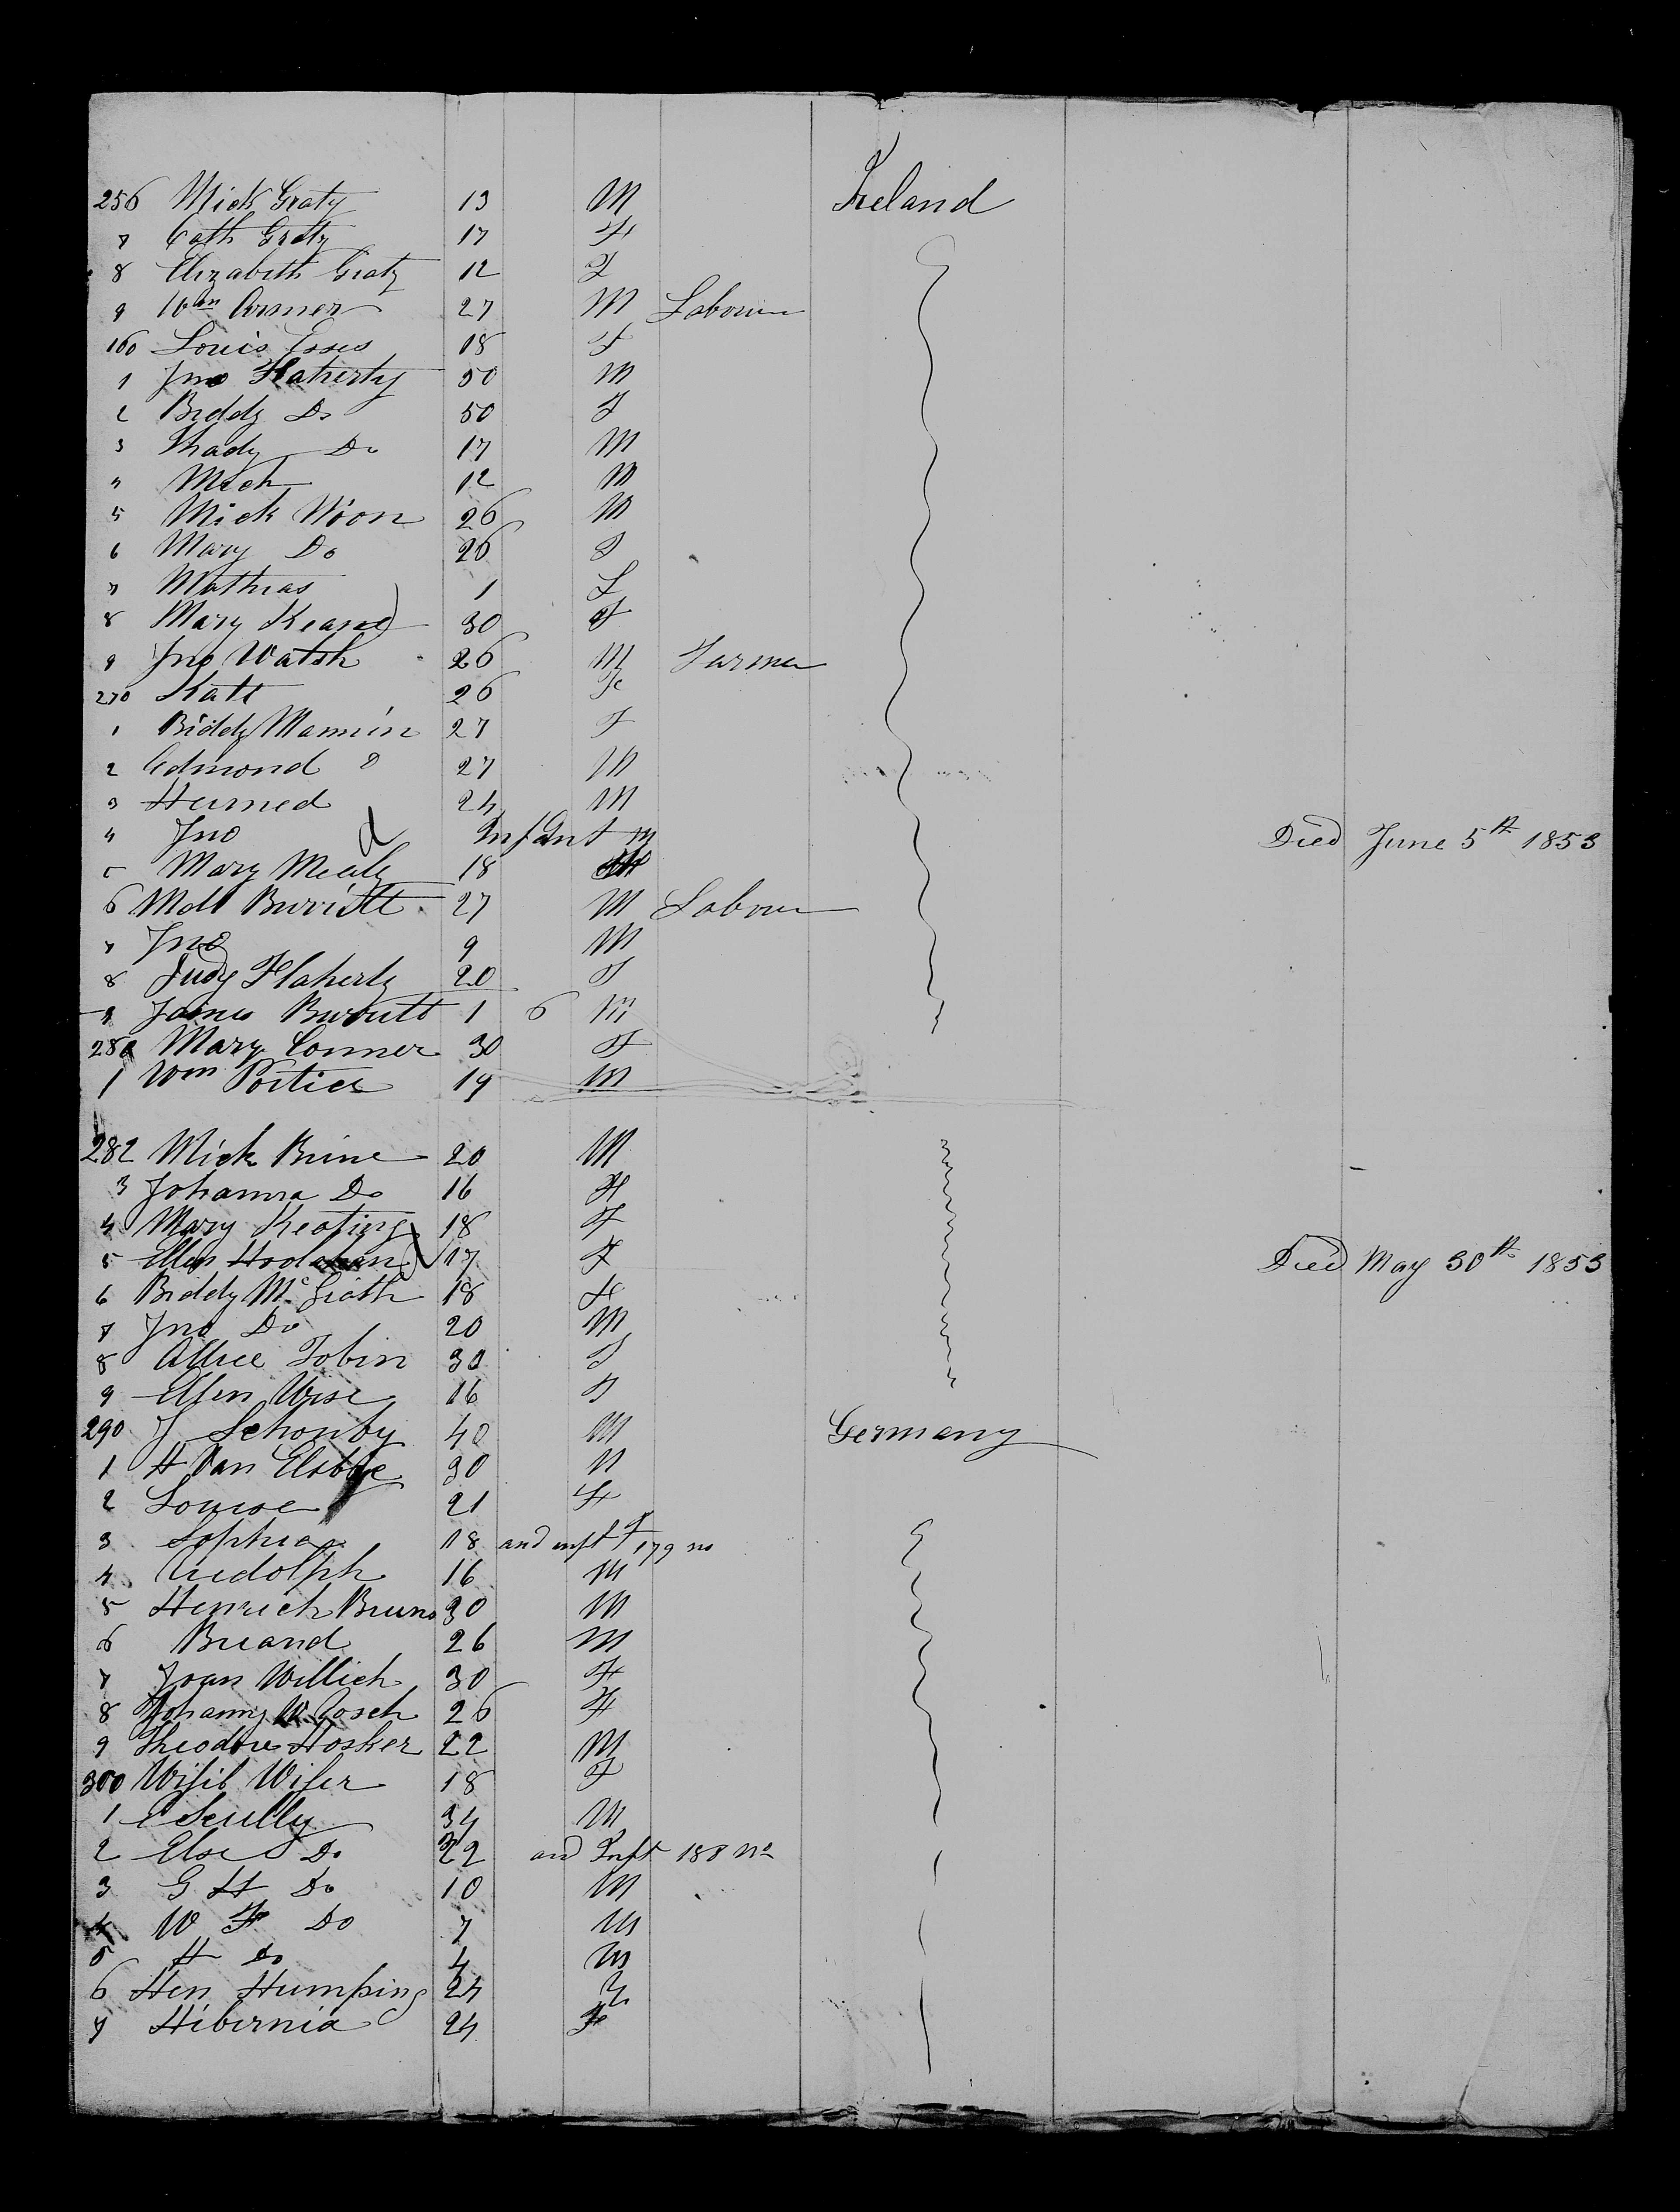 256 Mick Graty 13 M Ireland
7 Cath Graty 17 F
8 Elizabeth Graty 12 F
9 Wm Conner 27 M Labourer
160 Louis 18 F
1 Jno Flaherty 50 M
2 Biddy Do 50 F
3 Thady Do 17 M
4 Mich 12 M
5 Mick Woon 26 M
6 Mary Do 26 F
7 Mathias 1
8 Mary Keane 30 F
9 Jno Walsh 26 M Farmer
270 Kate 26 F
1 Biddy Mannin 27 F
2 Edmond D 27 M
3 Hurned 24 M
4 Jno d Infant M Died June 5th 1853
5 Mary Mealy 18
6 Burritt 27 M Labour
7 Jno 9 M
8 Judy Flaherty 20 F
9 James Burritt 1 6 M
280 Mary Conner 30 F
1 Wm Portice 19 M
282 Mick Brine 20 M
3 Johanna Do 16 F
4 Mary Keating 18 F
5 Ellen Hoolahan d 17 F Died May 30th 1853
6 Biddy McGrath 18 F
7 Jno Do 20 M
8 Allice Tobin 30 F
9 Ellen Wise 16 F
290 J Schonby 40 M Germany
1 H Van Elsbye 30 M
2 Louise 21 F
3 Sophia 18 and inft F 179 no
4 Rudolph 16 M
5 Henrich Bruns 30 M
6 Briand 26 M
7 Joan Willich 30 F
8 Johanny W Gosch 26 F
9 Theodore Hosker 22 M
300 Wifib Wifer 18 F
1 C Scully 34 M
2 Else Do 22 and Inft 188 No
3 G H Do 10 M
4 W F Do 7 M
5 H Do 4 M
6 Hen Humping 24
7 Hibernia 24 F